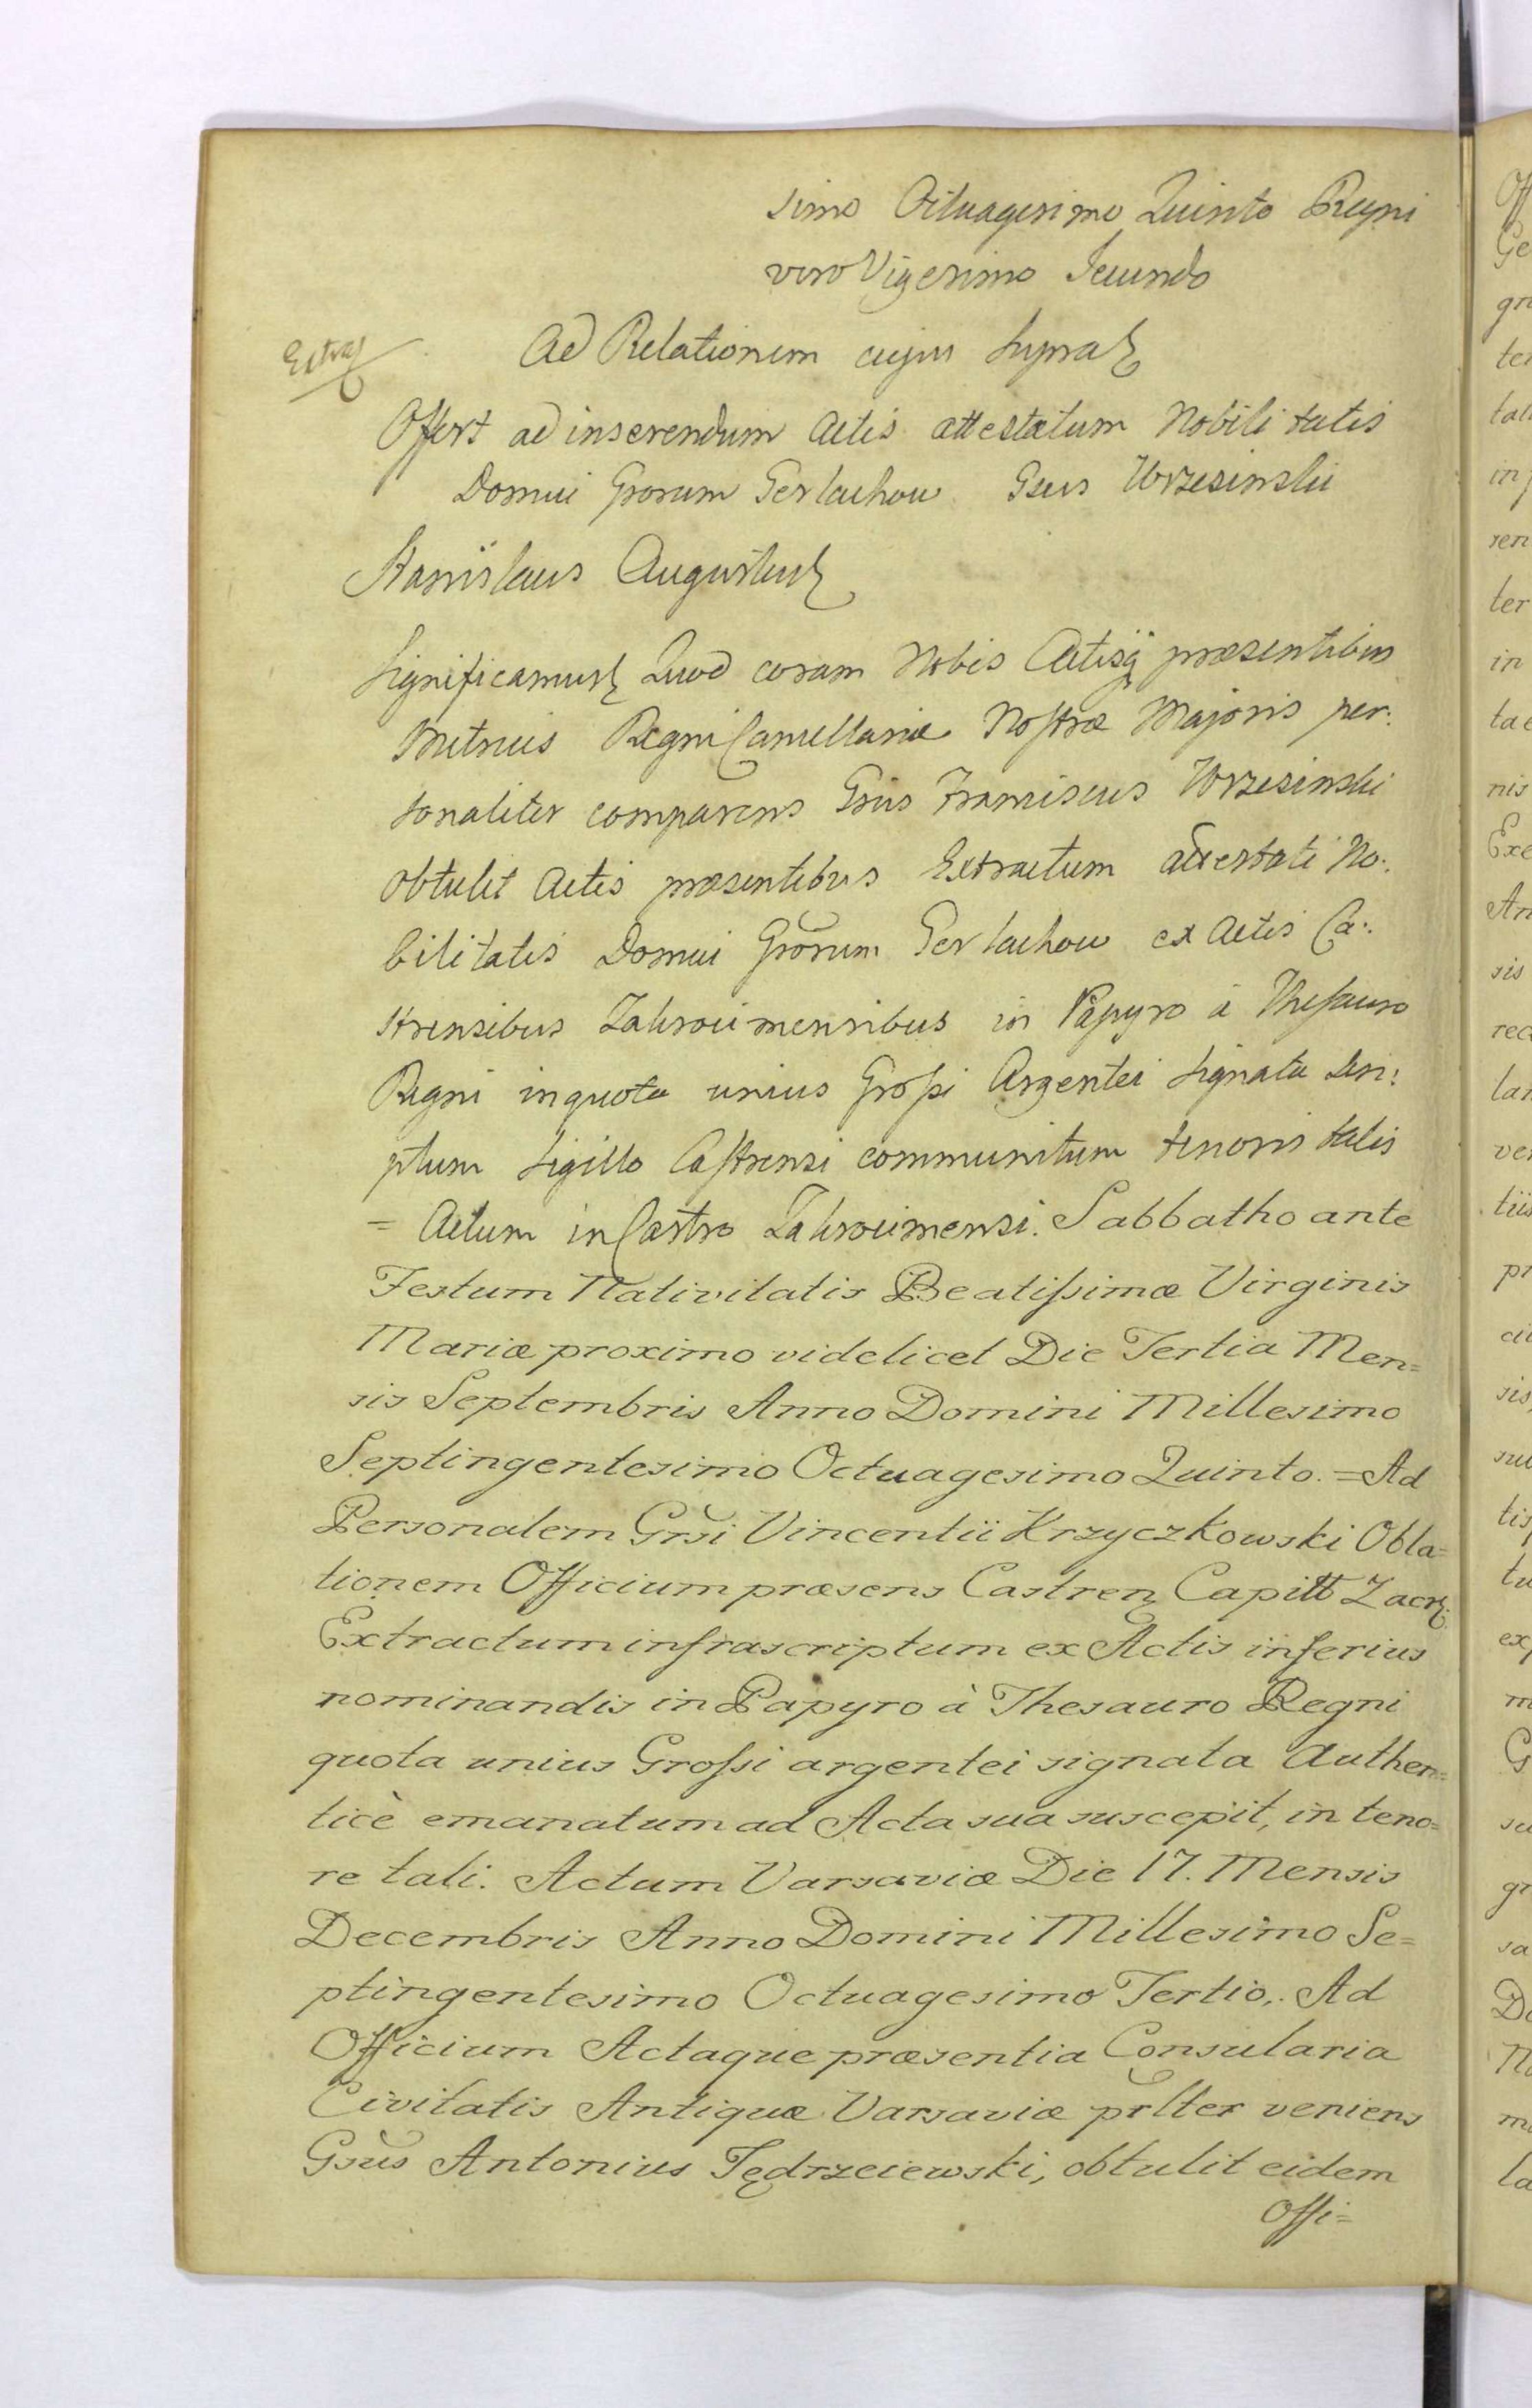 simo Octuagesimo Quinto Regni
vero Vigesimo Secundo
Extra
Ad Relationem cujus supra
Offert ad inserendum Actis attestatum Nobilitatis
Domui Grorum Gerlachow Gsus Wrzesinski
Stanislaus Augustus
Significamus Quod coram Nobis Actisq præsentibus
Metrices Regni Cancellariæ Nostræ Majoris per:
sonaliter comparens Gsus Franciscus Wrzesinski
obtulit Actis præsentibus Extractum attestati No:
bilitatis Domui Grorum Gerlachow ex Actis Ca:
strensibus Zakrocimensibus in Papyro à Thesauro
Regni in quota unius Grossi Argentei signata Scri:
ptum Sigillo Castrensi communitum tenoris talis
= Actum in Castro Zakrocimensi. Sabbatho ante
Festum Nativitatis Beatissimæ Virginis
Mariæ proximo videlicet Die Tertia Men=
sis Septembris Anno Domini Millesimo
Septingentesimo Octuagesimo Quinto. = Ad
Personalem Grsi Vincentii Krzyczkowski Obla=
tionem Officium præsens Castren Capitt Zacr:
Extractum infrascriptum ex Actis inferius
nominandis in Papyro à Thesauro Regni
quota unius Grossi argentei signata Authen=
ticè emanatum ad Acta sua suscepit, in teno=
re tali. Actum Varsaviæ Die 17. Mensis
Decembris Anno Domini Millesimo Se=
ptingentesimo Octuagesimo Tertio,. Ad
Officium Actaque præsentia Consularia
Civitatis Antiquæ Varsaviæ prlter veniens
Gsus Antonius Jędrzeiewski, obtulit eidem
Offi=